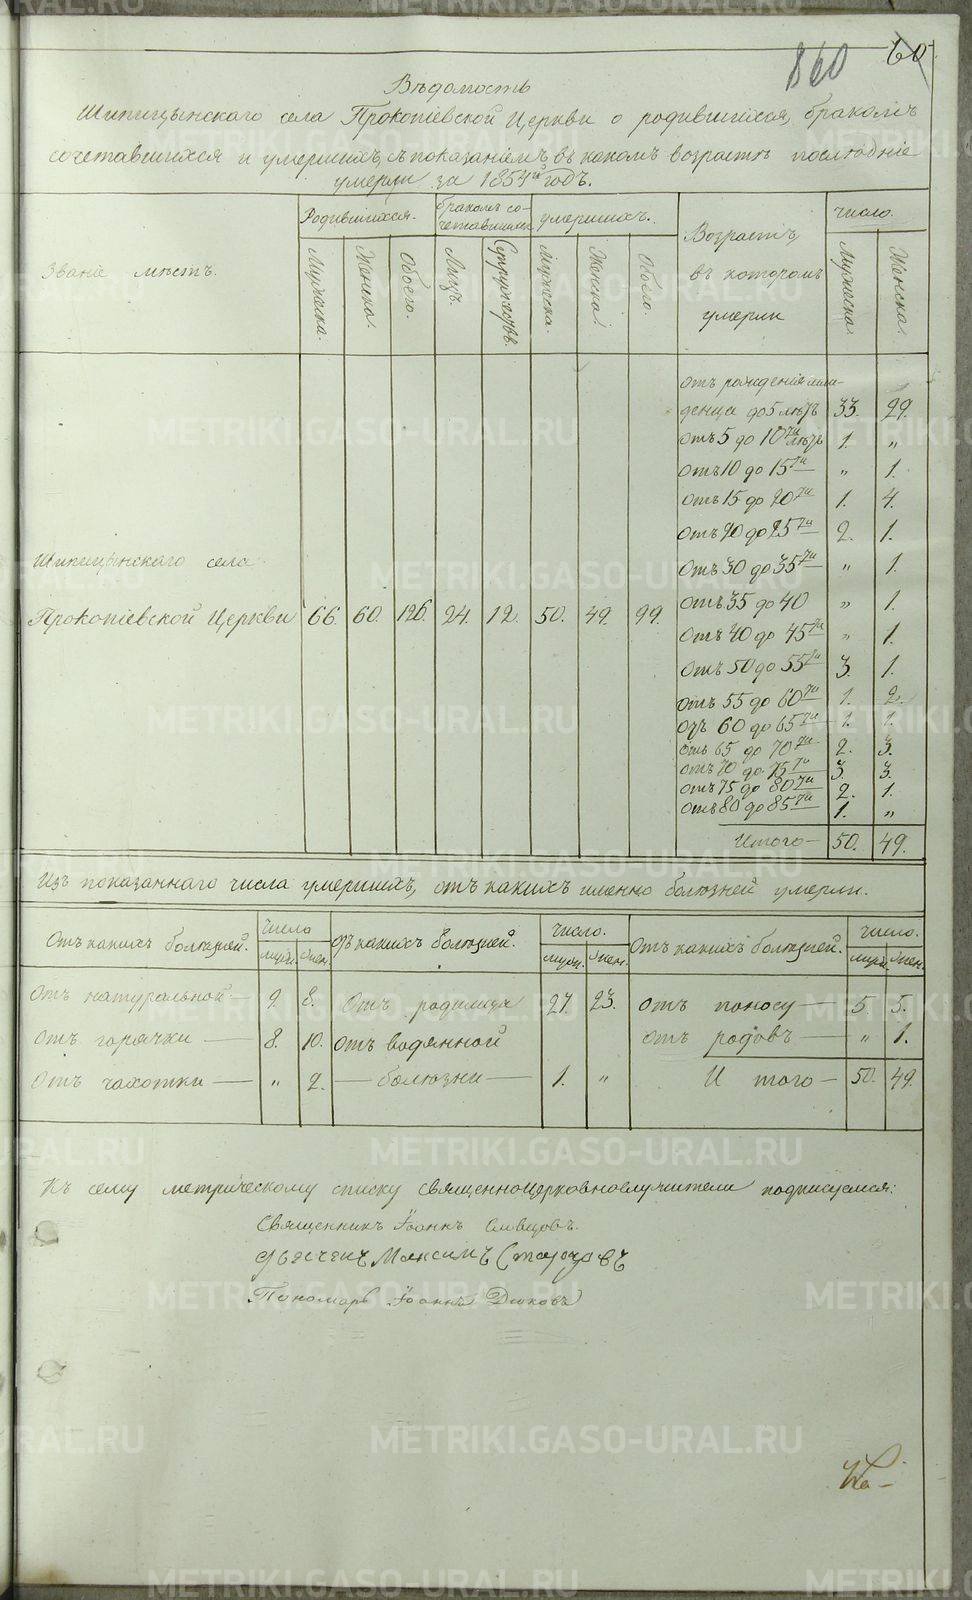 860 60
Вѣдомость
Шипицынскаго села Прокопіевской Церкви о родившихся, бракомъ
сочетавшихся и умершихъ, съ показаніемъ въ какомъ возрастѣ послѣдніе
умерли за 1854й годъ.
Званіе мѣстъ.
Родившихся.
бракомъ со-
четавшихся
умершихъ.
Возрастъ,
въ которомъ
умерли
число.
Мужеска. Женска. Обоего. Лицъ. Супружествъ. Мужеска. Женска. Обоего. Мужеска. Женска.
отъ рожденія мла-
денца до 5 лѣтъ 33. 29.
отъ 5 до 10ти лѣтъ 1. „
отъ 10 до 15ти „ 1.
отъ 15 до 20ти 1. 4.
отъ 20 до 25ти 2. 1.
отъ 30 до 35ти „ 1.
отъ 35 до 40 „ 1.
отъ 40 до 45ти „ 1.
отъ 50 до 55ти 3. 1.
отъ 55 до 60ти 1. 2.
отъ 60 до 65ти 1. 1.
отъ 65 до 70ти 2. 3.
отъ 70 до 75ти 3. 3.
отъ 75 до 80ти 2. 1.
отъ 80 до 85ти 1. „
Итого 50. 49.
Шипицынскаго села
Прокопіевской Церкви 66. 60. 126. 24. 12. 50. 49. 99.
Изъ показаннаго числа умершихъ, отъ какихъ именно болѣзней умерли.
Отъ какихъ болѣзней. Число муж. жен. Отъ какихъ болѣзней. Число. муж. жен. Отъ какихъ болѣзней. Число. муж. жен.
Отъ натуральной 9. 8. Отъ родимца 27. 23. отъ поносу 5. 5.
Отъ горячки 8. 10. Отъ водянной отъ родовъ „ 1.
Отъ чахотки „ 2. болѣзни 1. „ И того 50. 49.
Къ сему метрическому списку священноцерковнослужители подписуемся:
Священникъ Іоаннъ Словцовъ.
Діаконъ Максимъ
Пономарь Іоаннъ Дюковъ
METRIKI.GASO-URAL.RU